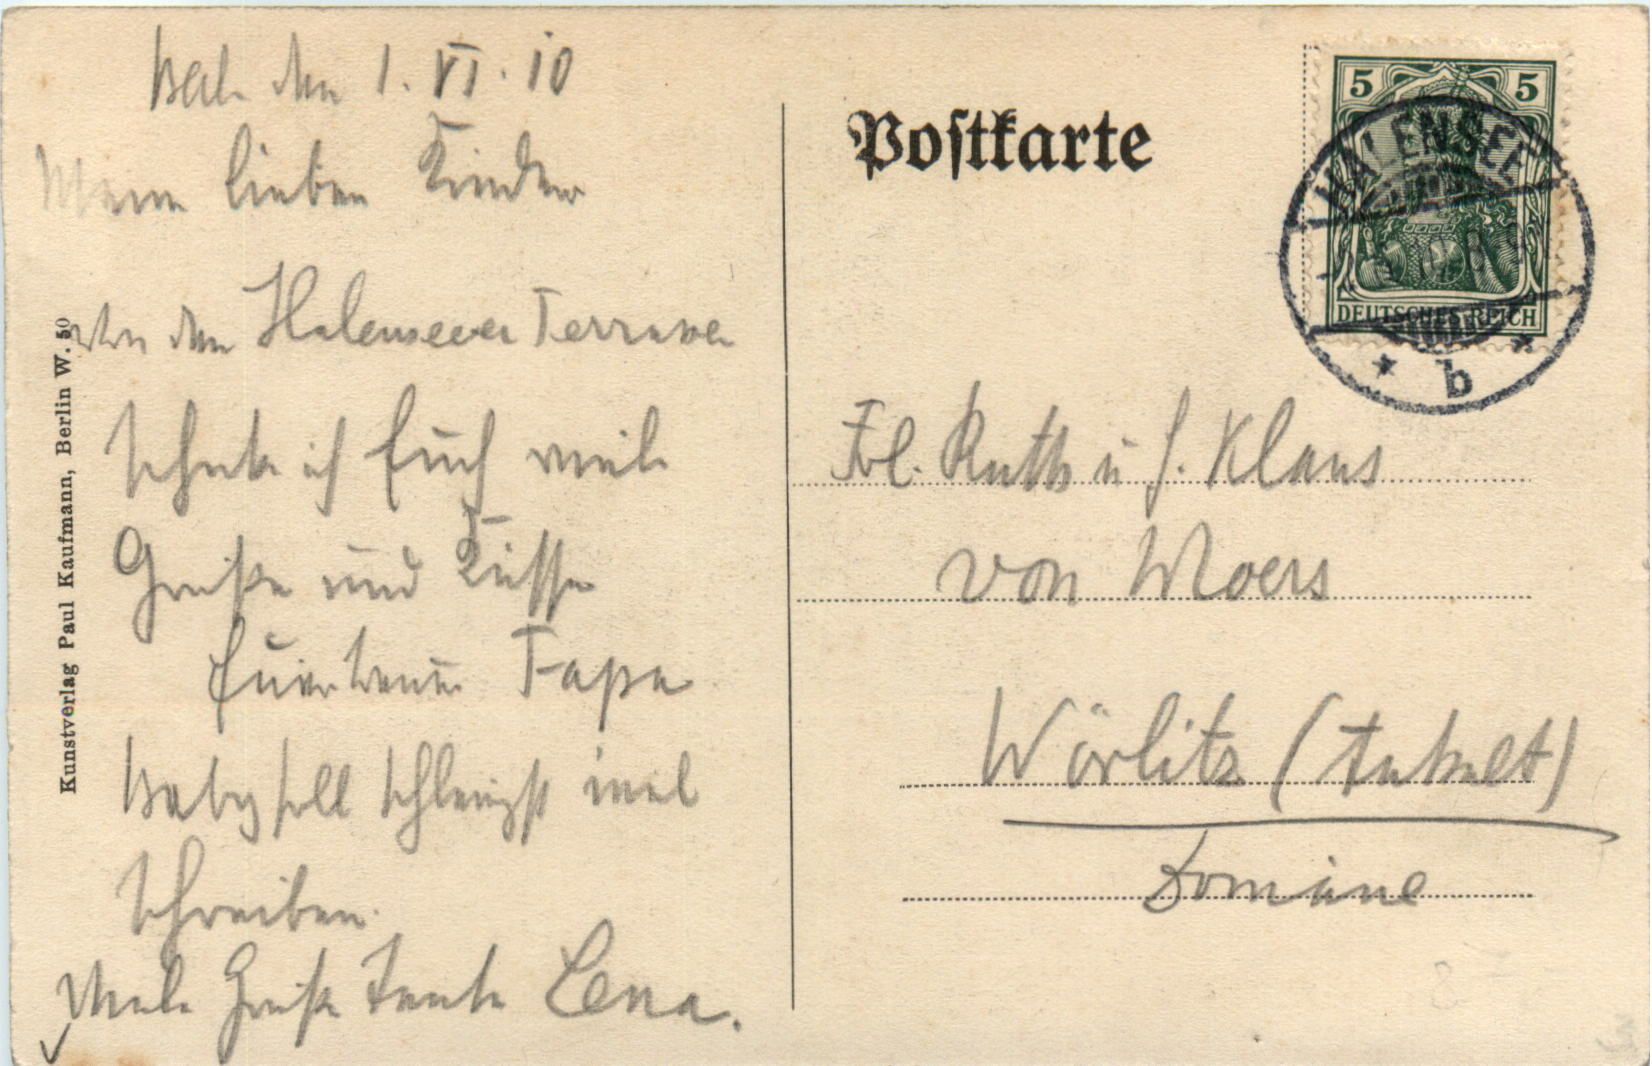 Berl. den 1. VI. 10
Meine lieben Kinder
Von den Halenseeer Terrassen
schicke ich Euch viele
Grüße und Küsse
Euer treuer Papa
Baby soll schleunigst mal
schreiben.
Viele Grüße Tante Lena.
Kunstverlag Paul Kaufmann, Berlin W. 50
Postkarte
5 5
DEUTSCHES REICH
HALENSEE
* b *
Frl. Ruth u H. Klaus
von Moers
Wörlitz (Anhalt)
Domäne